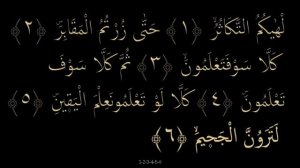 لْهَىٰكُمُ التَّكَاثُرُ ﴿١﴾ حَتَّىٰ زُرْتُمُ الْمَقَابِرَ ﴿٢﴾
كَلَّا سَوْفَتَعْلَمُونَ ﴿٣﴾ ثُمَّ كَلَّا سَوْفَ
تَعْلَمُونَ ﴿٤﴾ كَلَّا لَوْ تَعْلَمُونَعِلْمَ الْيَقِينِ ﴿٥﴾
لَتَرَوُنَّ الْجَحِيمَ ﴿٦﴾
1-2-3-4-5-6